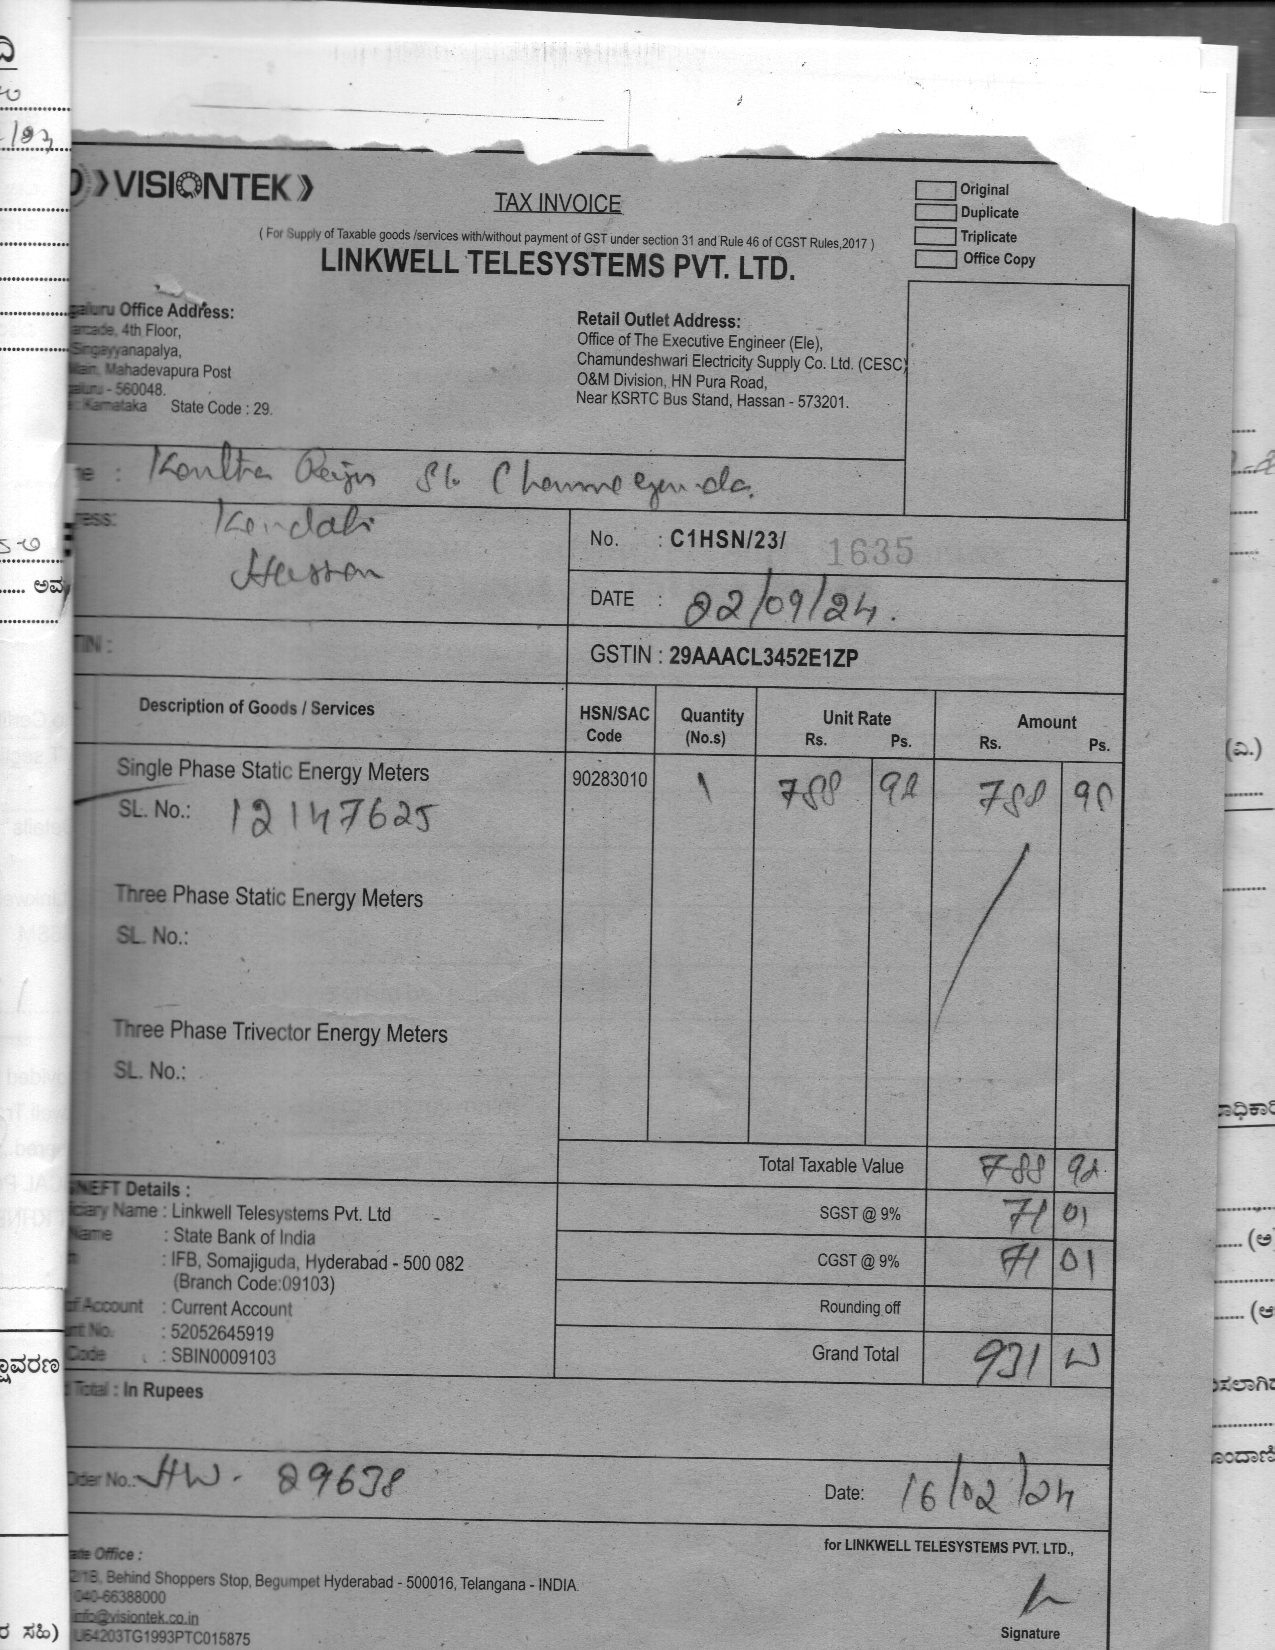 VISIONTEK
TAX INVOICE
Original
Duplicate
Triplicate
Office Copy
( For Supply of Taxable goods /services with/without payment of GST under section 31 and Rule 46 of CGST Rules,2017 )
LINKWELL TELESYSTEMS PVT. LTD.
Office Address:
4th Floor,
Mahadevapura Post
- 560048.
Karnataka State Code : 29.
Retail Outlet Address:
Office of The Executive Engineer (Ele),
Chamundeshwari Electricity Supply Co. Ltd. (CESC)
O&M Division, HN Pura Road,
Near KSRTC Bus Stand, Hassan - 573201.
Kendali
Hasson
No. : C1HSN/23/ 1635
DATE : 22/09/24.
GSTIN : 29AAACL3452E1ZP
Description of Goods / Services HSN/SAC Code Quantity (No.s) Unit Rate Rs. Ps. Amount Rs. Ps.
Single Phase Static Energy Meters 90283010 1 788 92 788 90
SL. No.: 12147625
Three Phase Static Energy Meters
SL. No.:
Three Phase Trivector Energy Meters
SL. No.:
Total Taxable Value 788 92
NEFT Details :
Name : Linkwell Telesystems Pvt. Ltd
SGST @ 9% 71 01
Name : State Bank of India
: IFB, Somajiguda, Hyderabad - 500 082
(Branch Code:09103)
CGST @ 9% 71 01
of Account : Current Account
Rounding off
No. : 52052645919
Code : SBIN0009103
Grand Total 931
Total : In Rupees
Order No.: HW - 29638
Date: 16/02/24
for LINKWELL TELESYSTEMS PVT. LTD.,
Office :
Behind Shoppers Stop, Begumpet Hyderabad - 500016, Telangana - INDIA.
040-66388000
info@visiontek.co.in
U64203TG1993PTC015875
Signature